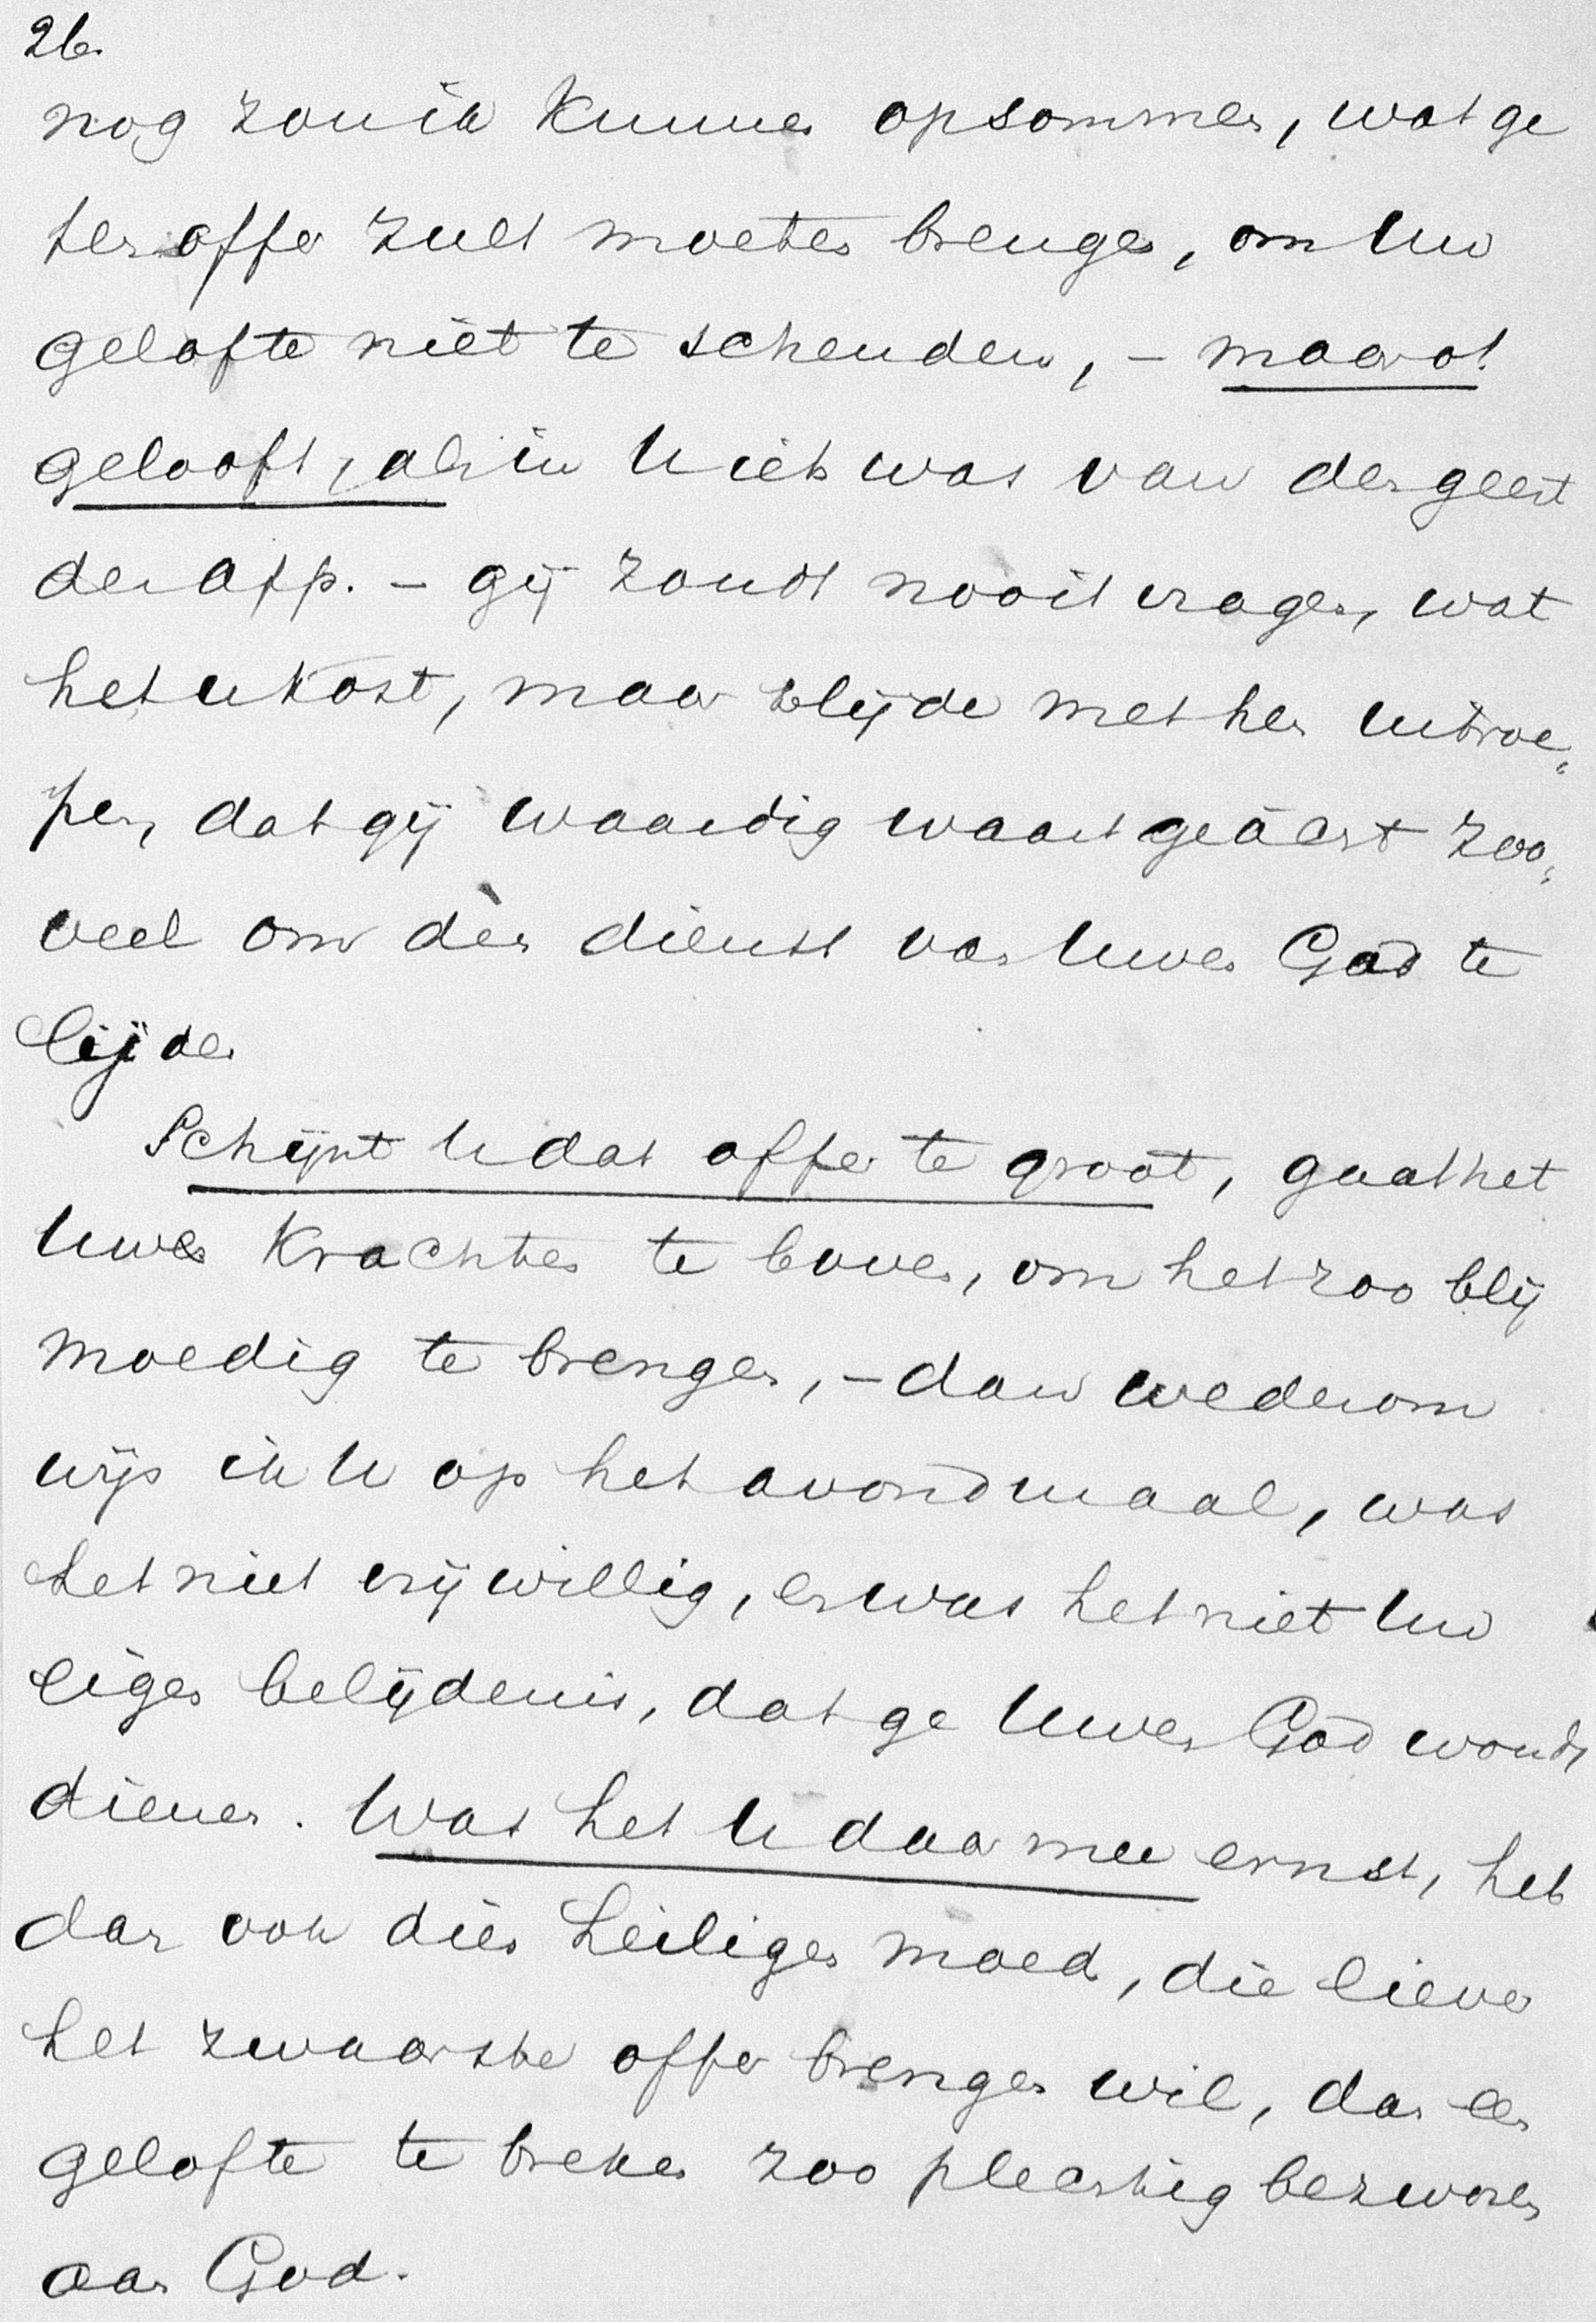 26.
nog zou ik kunnen opsommen, wat ge
ten offer zult moeten brengen, om Uw
gelofte niet te schenden, – maar o!
gelooft, als in U iets was van den geest
der App. – gij zoudt nooit vragen, wat
het u kost, maar blijde met hen uitroe„
pen, dat gij waardig waart geacht zoo„
veel om den dienst van Uwen God te
lijden
Schijnt U dat offer te groot, gaat het
Uwe krachten te boven, om het zoo blij
moedig te brengen, – dan wederom
wijs ik U op het avondmaal, was
het niet vrijwillig, en was het niet Uw
eigen belijdenis, dat ge Uwen God woudt
dienen. Was het U daarmee ernst, heb
dan ook dien heiligen moed, die liever
het zwaarste offer brengen wil, dan een
gelofte te breken zoo plechtig bezworen
aan God.